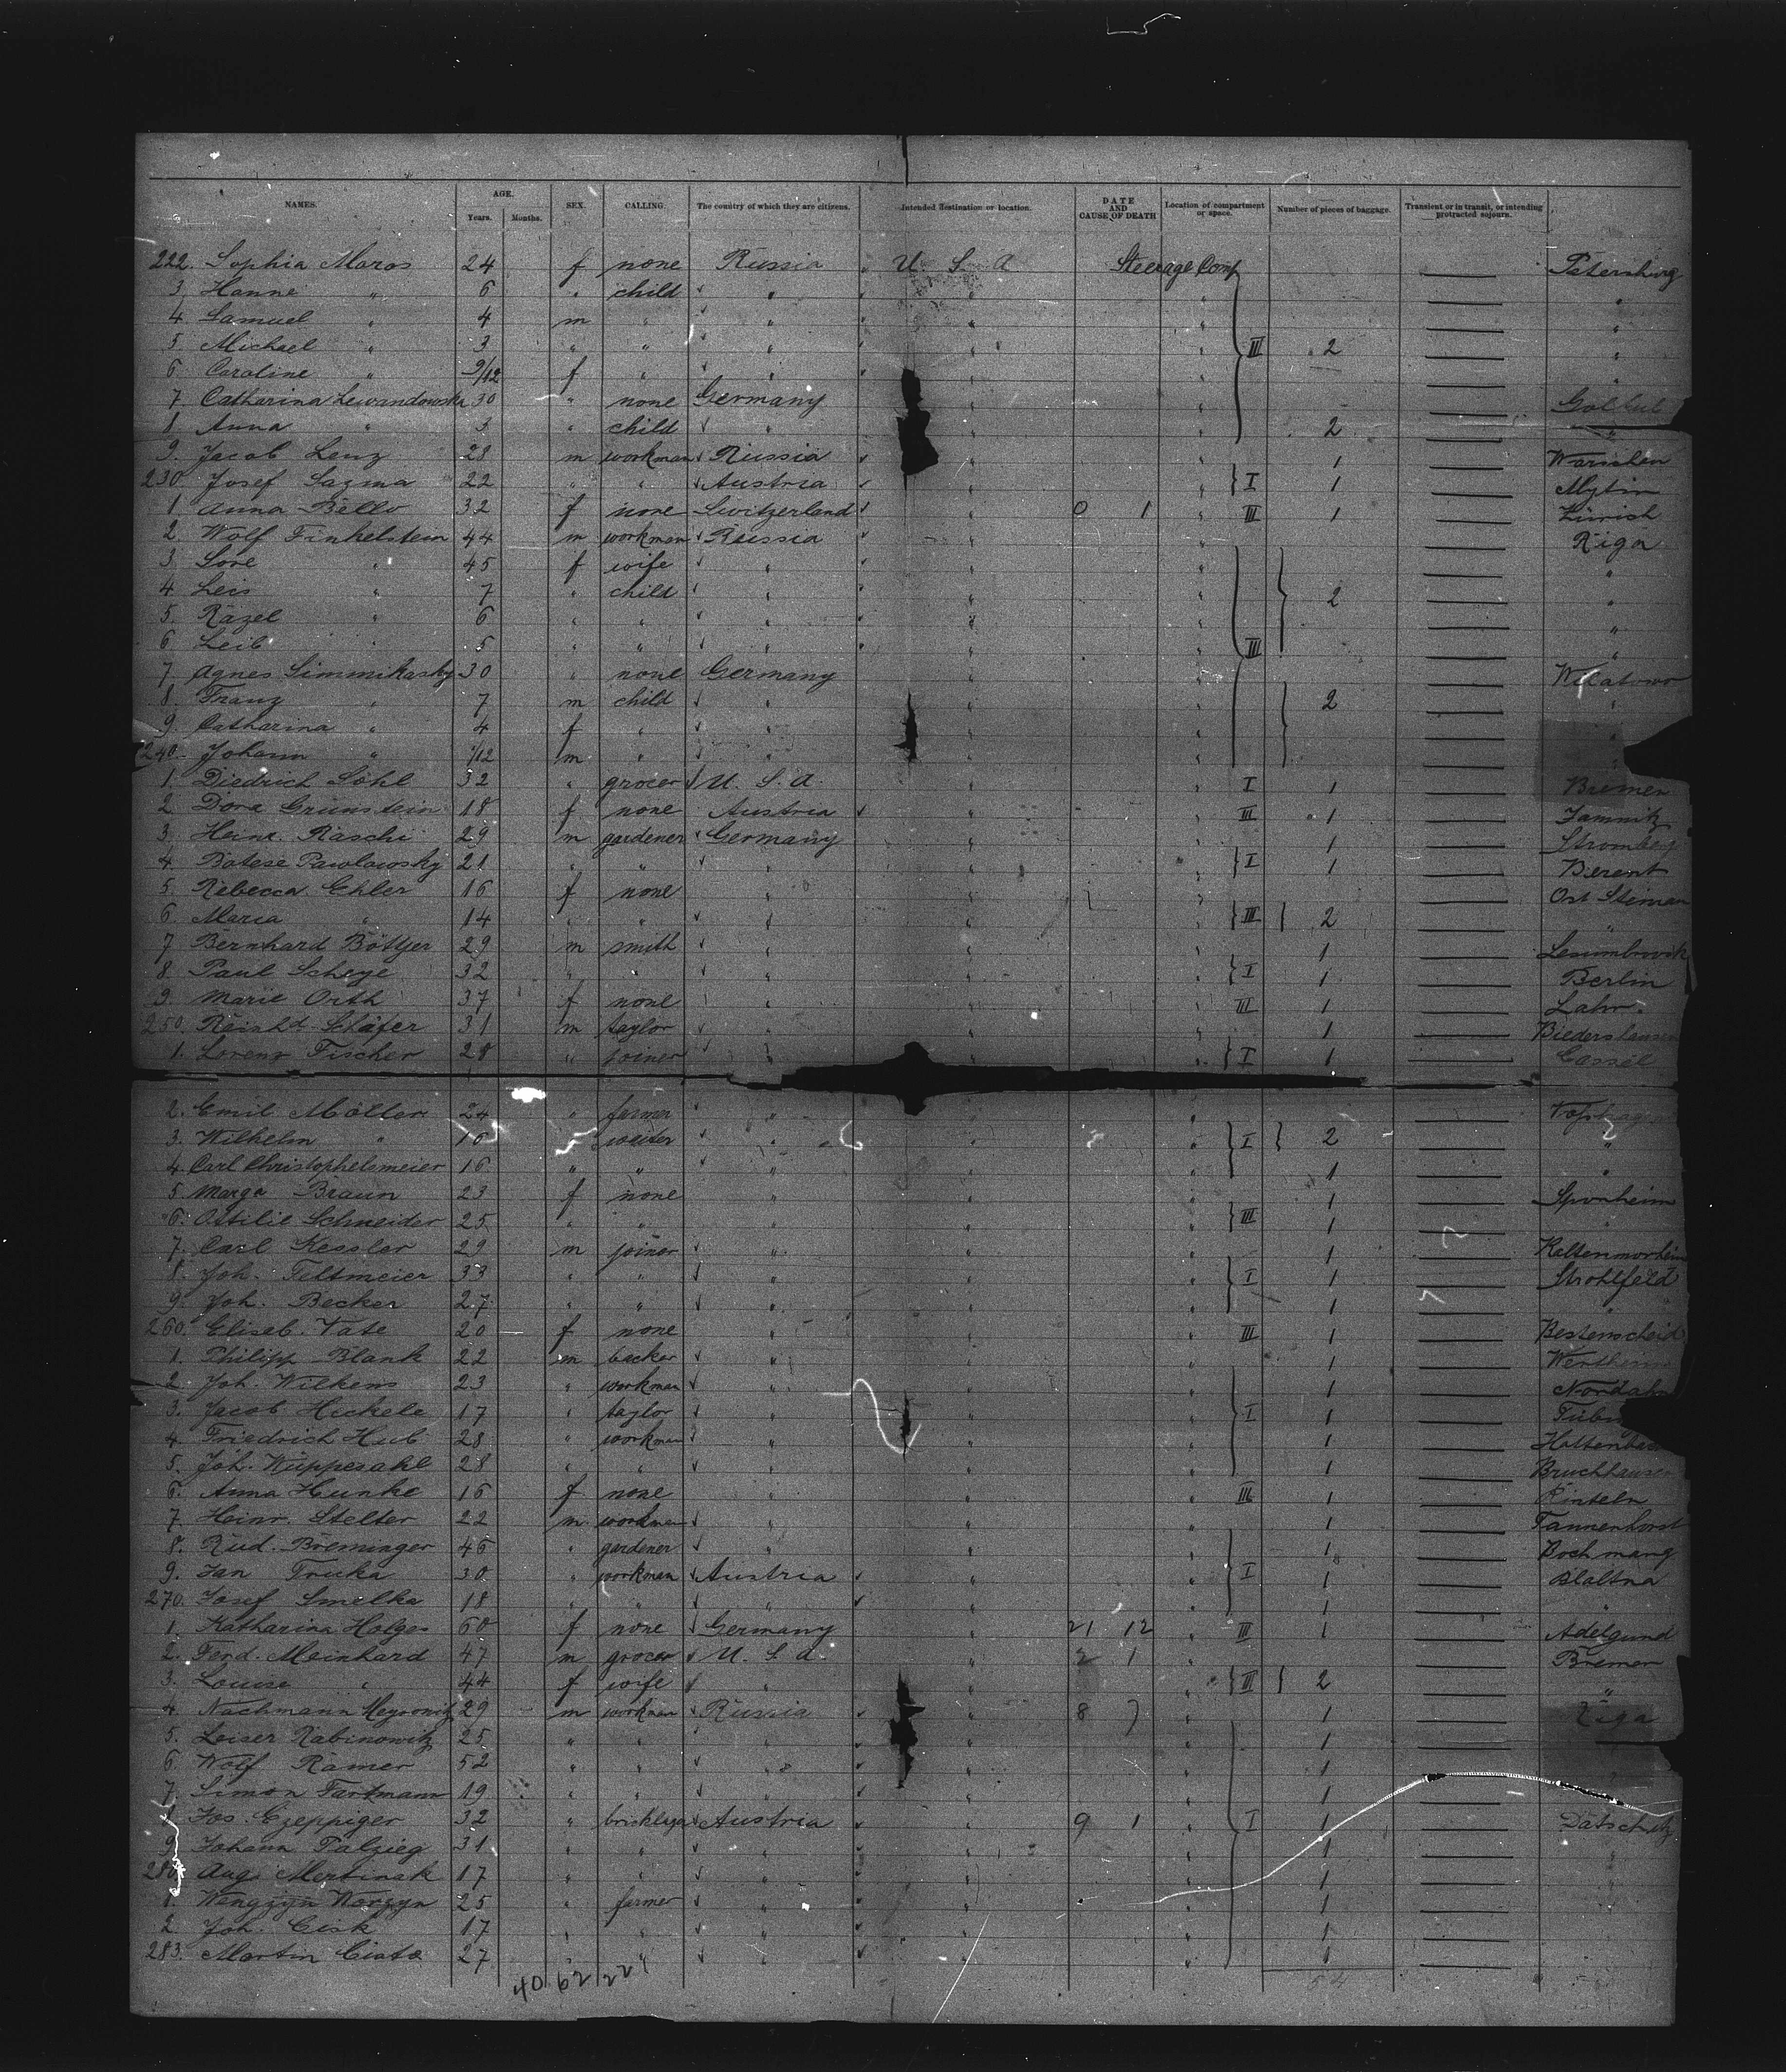 NAMES. AGE. Years. Months. SEX. CALLING. The country of which they are citizens. Intended Destination or location. DATE AND CAUSE OF DEATH Location of compartment or space. Number of pieces of baggage. Transient or in transit, or intending protracted sojourn.
222. Sophia Maros 24 f none Russia U. S. A Steerage Comp Petersburg
3. Hanne " 6 " child " " " "
4. Samuel " 4 m " " " "
5. Michael " 3 " " " " III 2 "
6. Caroline " 9/12 f " " " "
7. Catharina Lewandowska 30 " none Germany " Gollub
8. Anna " 3 " child " " 2 "
9. Jacob Lenz 28 m workman Russia " 1 Warschau
230. Josef Sazma 22 " " Austria " I 1 Mytin
1. Anna Bello 32 f none Switzerland " 0 1 III 1 Zürich
2. Wolf Finkelstein 44 m workman Russia " Riga
3. Sore " 45 f wife " " "
4. Leis " 7 " child " " 2 "
5. Räzel " 6 " " " " "
6. Leib " 5 " " " " III "
7. Agnes Simmikasky 30 " none Germany "
8. Franz " 7 m child " " 2 "
9. Catharina " 4 f " " " "
240. Johann " 1/12 m " " "
1. Diedrich Söhl 32 " grocer U. S. A. " I 1 Bremen
2. Dora Grünstein 18 f none Austria " III 1 Jamnitz
3. Heinr. Raschi 29 m gardener Germany " 1 Stromberg
4. Batese Pawlowsky 21 " " " " I 1 Berent
5. Rebecca Ehler 16 f none " " Ost
6. Maria " 14 " " " " III 2 "
7. Bernhard Böttjer 29 m smith " " 1
8. Paul Scheye 32 " " " " I 1 Berlin
9. Marie Orth 37 f none " " III 1 Lahr.
250. Reinhd. Schäfer 31 m taylor " " 1 Biedershausen
1. Lorenz Fischer 28 " joiner " " I 1 Cassel
2. Emil Möller 24 " farmer " "
3. Wilhelm " 16 " waiter " " I 2 "
4. Carl Christophelsmeier 16 " " " " 1 "
5. Marga Braun 23 f none " " 1 Sponheim
6. Ottilie Schneider 25 " " " " III 1 "
7. Carl Kessler 29 m joiner " " 1 Kaltennordheim
8. Joh. Feltmeier 33 " " " " I 1 Strohlfeld
9. Joh. Becker 27 " " " " 1 "
260. Eliseb. Tate 20 f none " " III 1 Bestenscheid
1. Philipp Blank 22 m backer " " 1 Wertheim
2. Joh. Wilkens 23 " workman " " 1
3. Jacob Hickele 17 " taylor " " I 1
4. Friedrich Hub 28 " workman " " 1
5. Joh. Wuppesahl 28 " " " " 1 Bruchhausen
6. Anna Hunke 16 f none " " III 1 Rinteln
7. Heinr. Stelter 22 m workman " " 1 Tannenhorst
8. Rud. Breminger 46 " gardener " " 1
9. Jan Truka 30 " workman Austria " I 1 Blaltna
270. Josef Smelka 18 " " " " 1 "
1. Katharina Holges 60 f none Germany " 21 12 III 1 Adelgund
2. Ferd. Meinhard 47 m grocer U. S. A. " 2 1 Bremen
3. Louise " 44 f wife " " III 2 "
4. Nachmann Meyrowitz 29 m workman Russia " 8 1 Riga
5. Leiser Rabinowitz 25 " " " " 1
6. Wolf Ramer 52 " " " " 1
7. Simon Fartmann 19 " " " " 1
8. Jos. Czeppiger 32 " bricklayer Austria " 9 1 I 1 Datschitz
9. Johann Palzieg 31 " " " " 1 "
280. Aug. Martinak 17 " " " " 1 "
1. Wengzyn Worzyn 25 " farmer " " 1 "
2. Joh. Cisk 17 " " " " 1 "
283. Martin Cista 27 " " " " 1 "
40 62 221 54